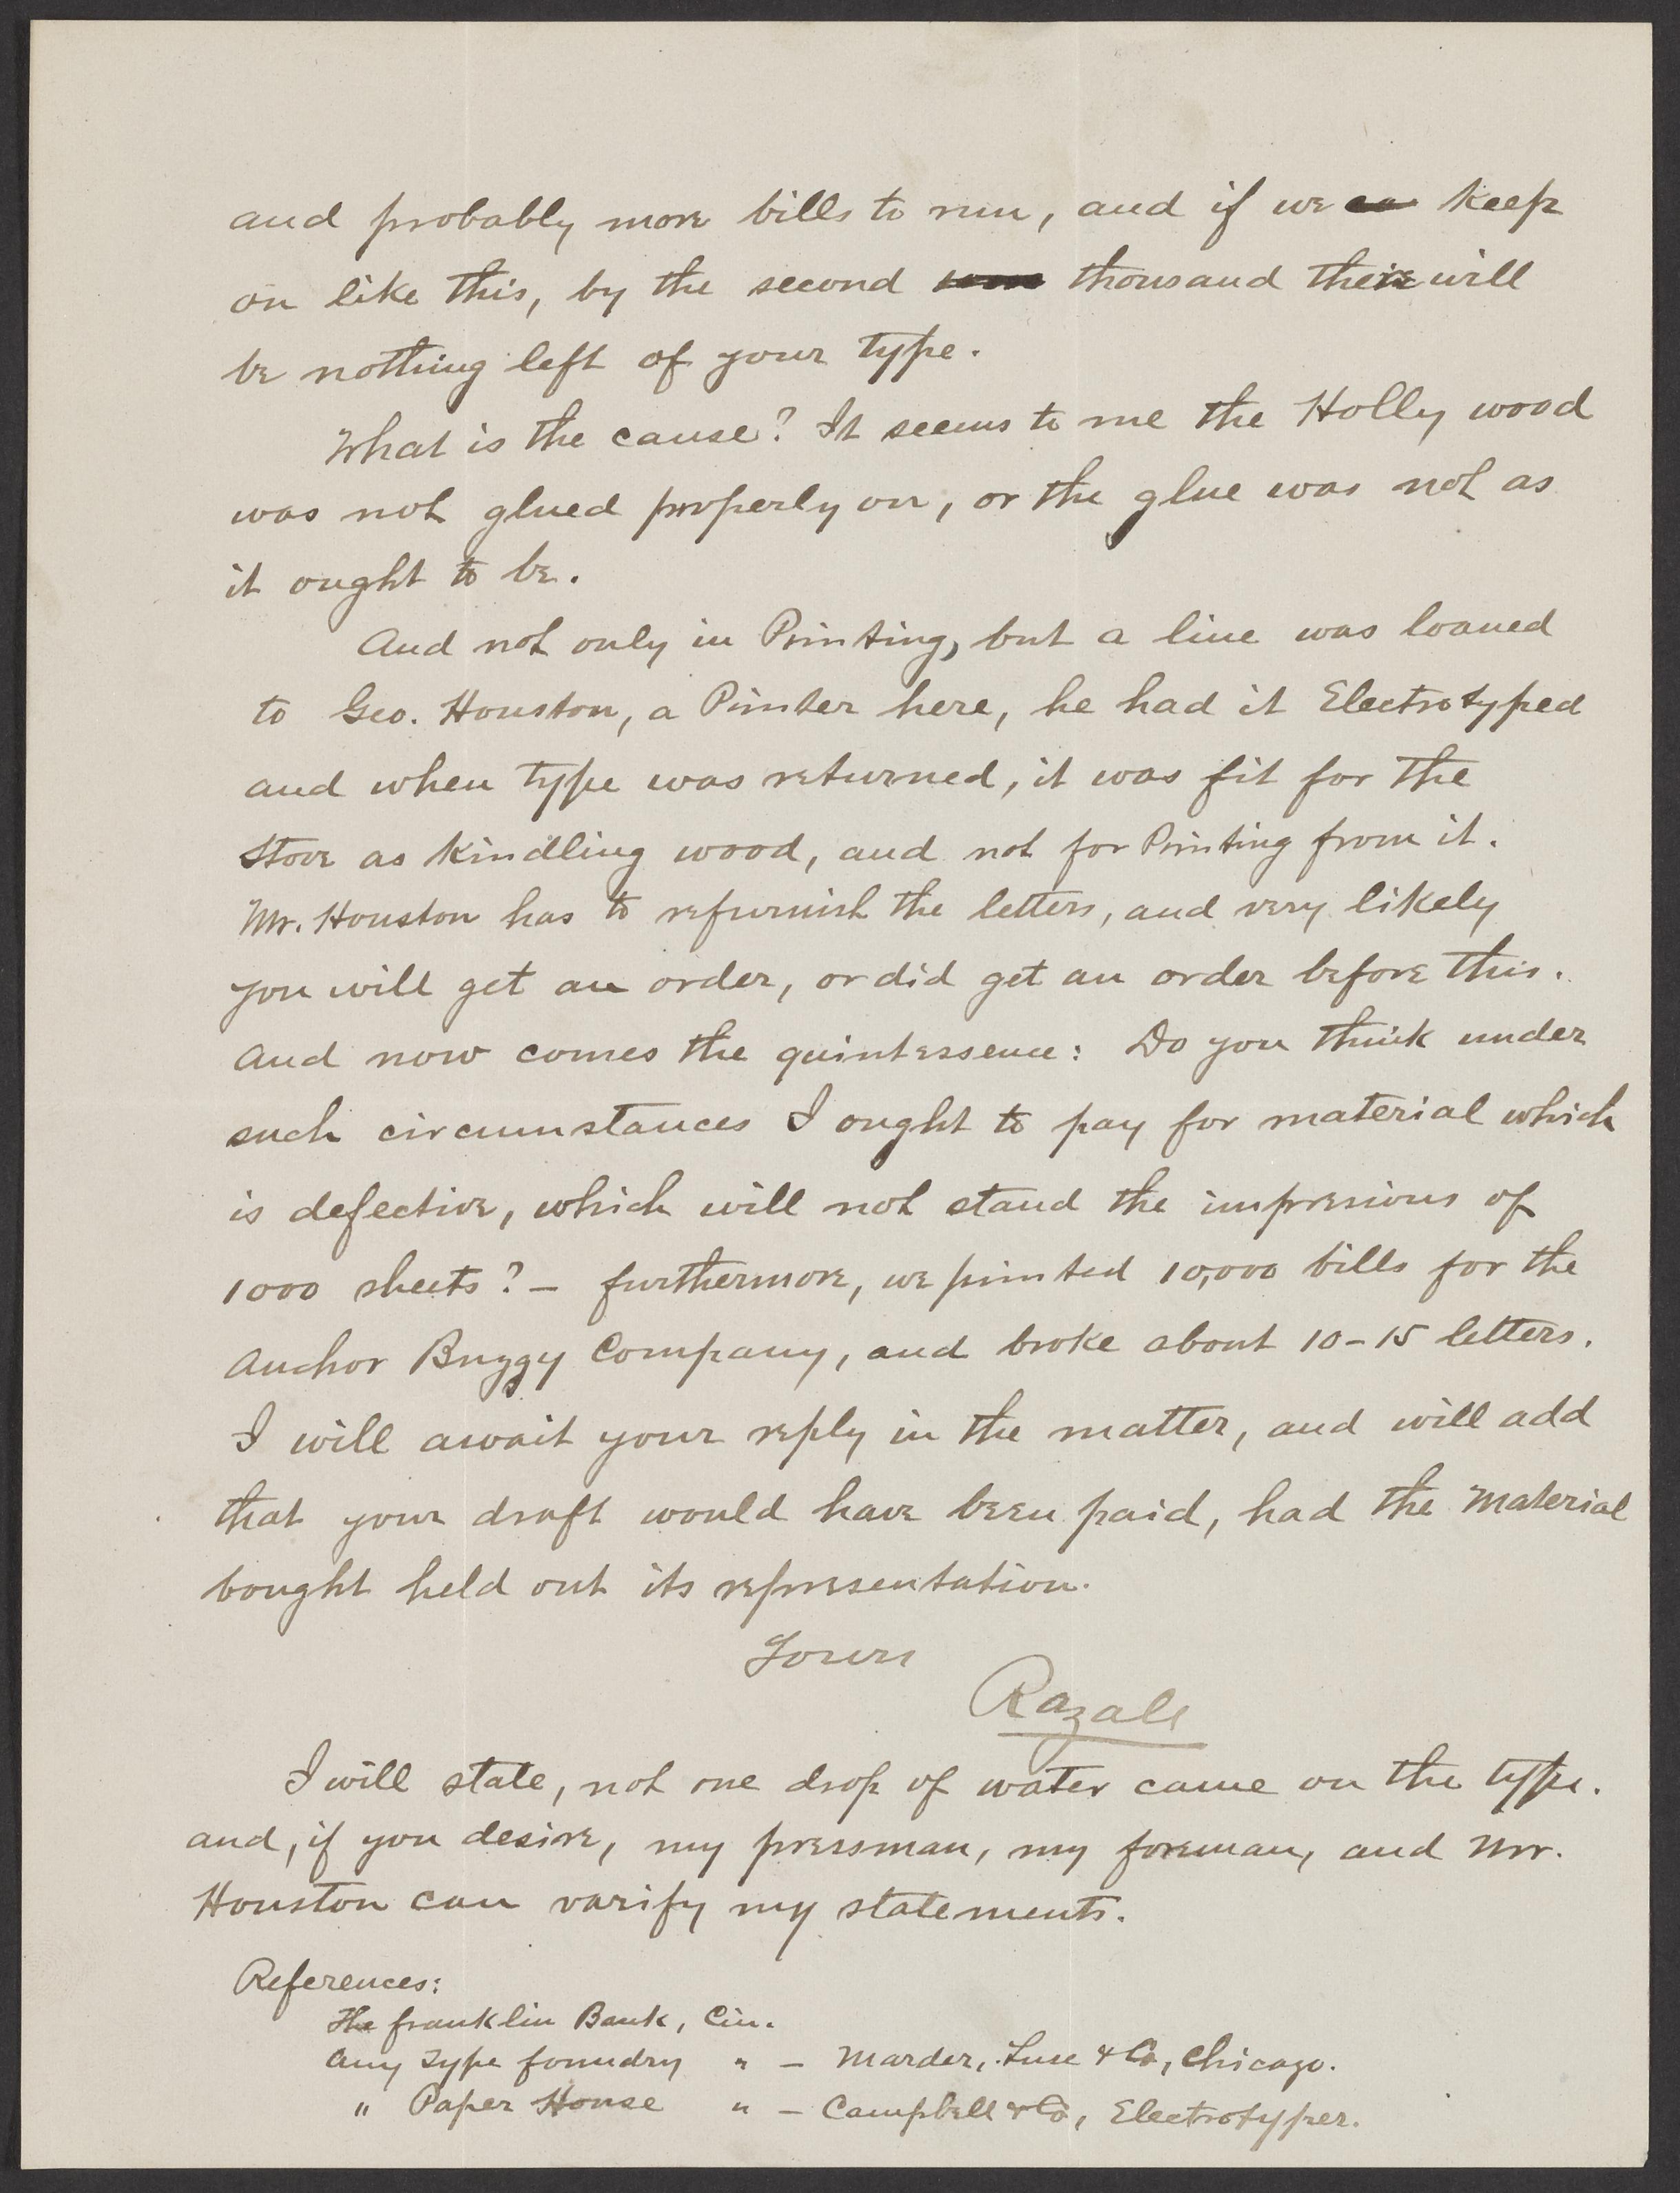 and probably more bills to run, and if we keep
on like this, by the second thousand there will
be nothing left of your type.
What is the cause? It seems to me the Holly wood
was not glued properly on, or the glue was not as
it ought to be.
And not only in Printing, but a line was loaned
to Geo. Houston, a Printer here, he had it Electrotyped
and when type was returned, it was fit for the
stove as kindling wood, and not for Printing from it.
Mr. Houston has to refurnish the letters, and very likely
you will get an order, or did get an order before this.
And now comes the quintessence: Do you think under
such circumstances I ought to pay for material which
is defective, which will not stand the impressions of
1000 sheets? – furthermore, we printed 10,000 bills for the
Anchor Buggy Company, and broke about 10–15 letters.
I will await your reply in the matter, and will add
that your draft would have been paid, had the Material
bought held out its representation.
Yours
Razall
I will state, not one drop of water came on the type.
and, if you desire, my pressman, my foreman, and Mr.
Houston can varify my statements.
References:
The Franklin Bank, Cin.
Any Type foundry " – Marder, Luse & Co, Chicago.
" Paper House " – Campbell & Co, Electrotyper.